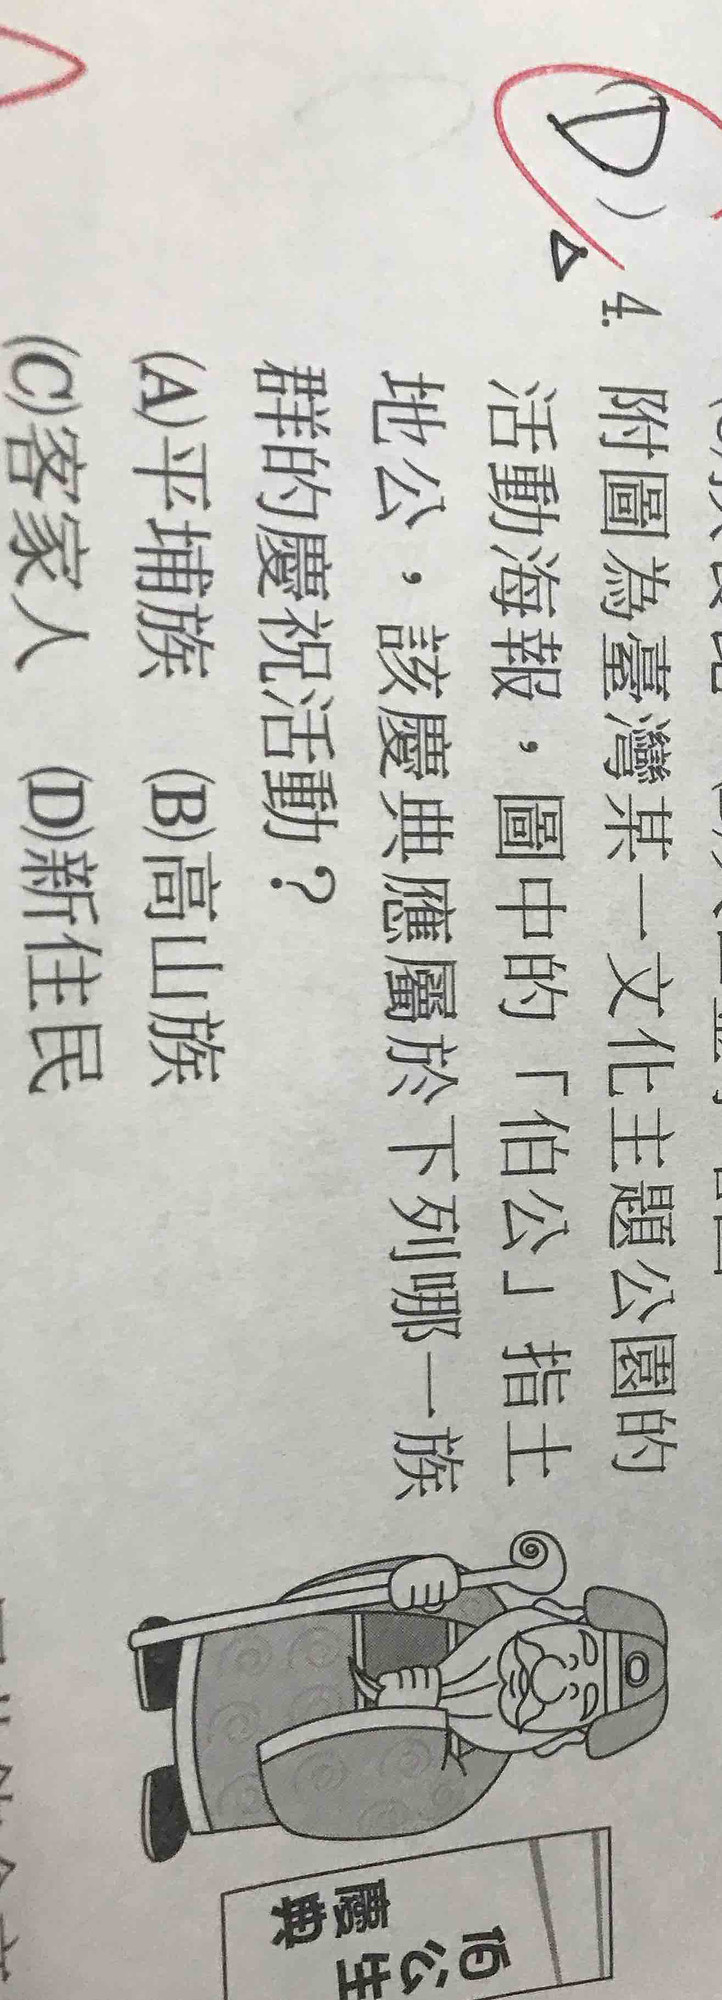 (D) 4. 附圖為臺灣某一文化主題公園的
活動海報，圖中的「伯公」指土
地公，該慶典應屬於下列哪一族
群的慶祝活動？
(A)平埔族 (B)高山族
(C)客家人 (D)新住民
伯公生
慶典